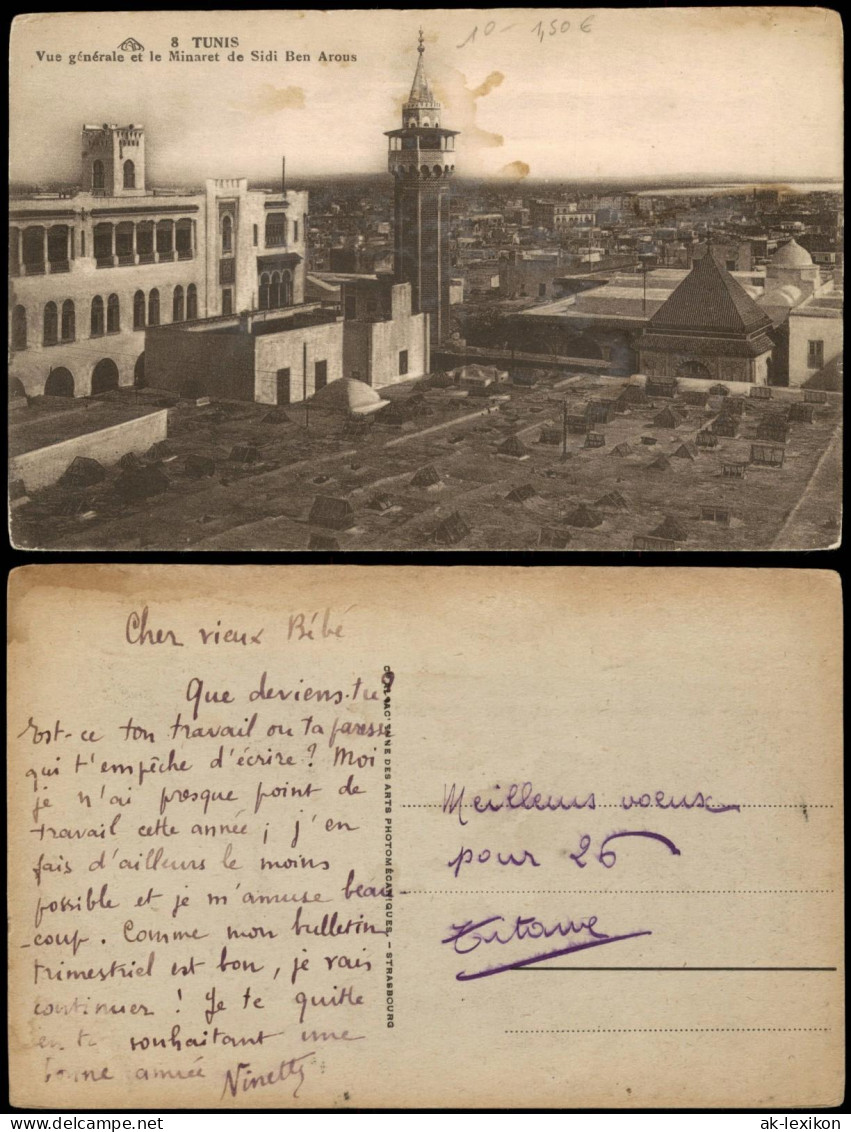 8 TUNIS
Vue générale et le Minaret de Sidi Ben Arous
10- 1,50 €
Cher vieux Bébé
Que deviens-tu?
Est-ce ton travail ou ta paresse
qui t'empêche d'écrire? Moi
je n'ai presque point de
travail cette année; j'en
fais d'ailleurs le moins
possible et je m'amuse beau-
-coup. Comme mon bulletin
trimestriel est bon, je vais
continuer! Je te quitte
en te souhaitant une
bonne année Ninette
DES ARTS PHOTOMÉCANIQUES. – STRASBOURG
Meilleurs voeux
pour 26
ak-lexikon